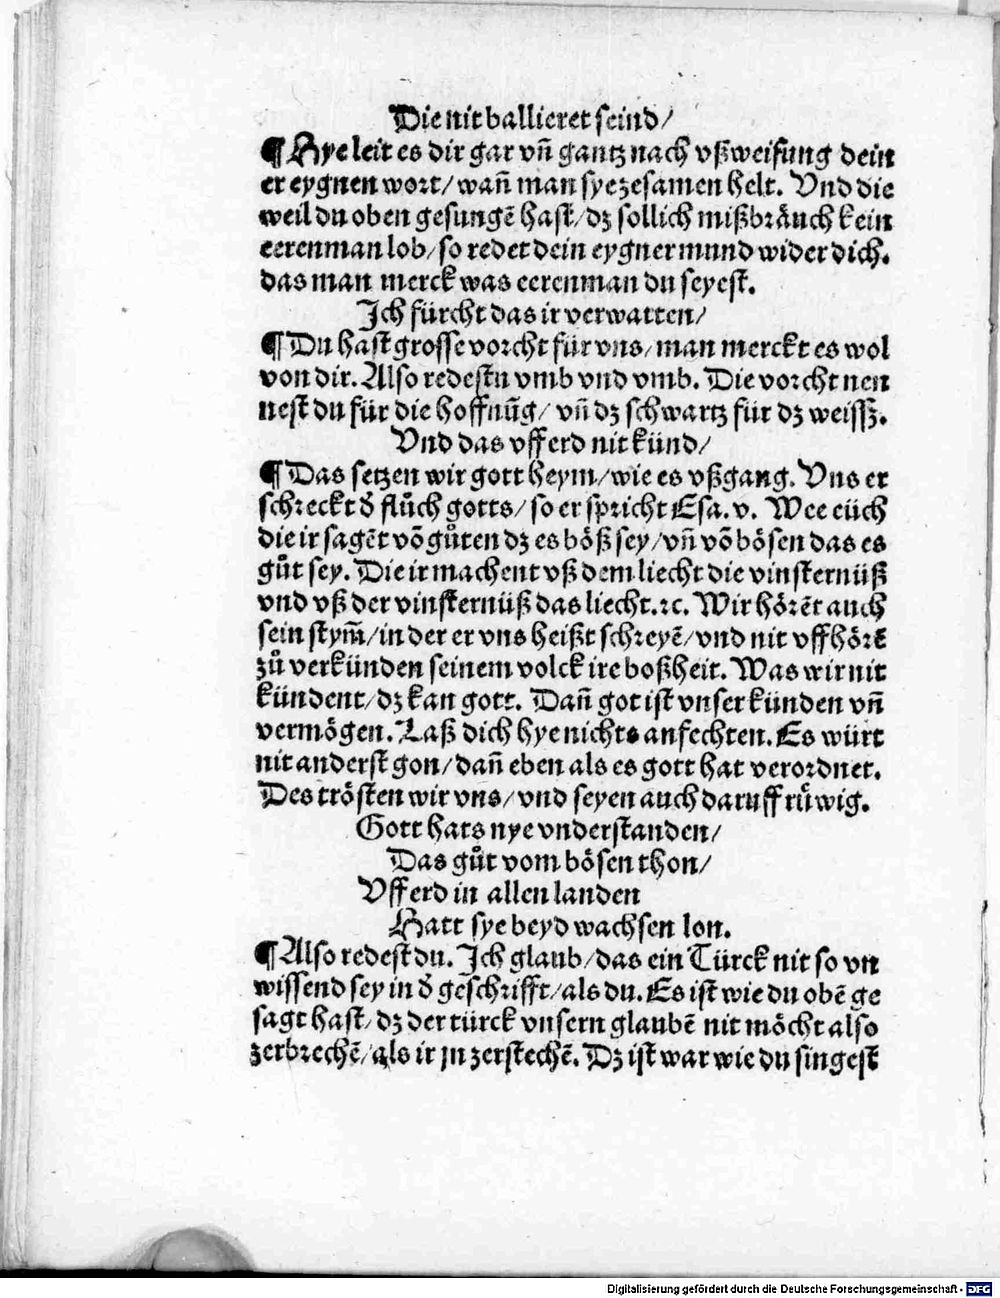 Die nit ballieret seind/
¶ Hye leit es dir gar vñ gantz nach vßweisung dein
er eygnen wort/ wañ man sye zesamen helt. Vnd die
weil du oben gesungē hast/ dz sollich mißbräuch kein
eerenman lob/ so redet dein eygner mund wider dich.
das man merck was eerenman du seyest.
Ich fürcht das ir verwatten/
¶ Du hast grosse vorcht für vns/ man merckt es wol
von dir. Also redestu vmb vnd vmb. Die vorcht nen
nest du für die hoffnūg/ vñ dz schwartz für dz weissz.
Vnd das vff erd nit künd/
¶ Das setzen wir gott heym/ wie es vßgang. Vns er
schreckt d̄ flůch gotts/ so er spricht Esa. v. Wee eüch
die ir sagēt vō gůten dz es böß sey/ vñ vō bösen das es
gůt sey. Die ir machent vß dem liecht die vinsternüß
vnd vß der vinsternüß das liecht.ꝛc. Wir hörēt auch
sein stym̄/ in der er vns heißt schreyē/ vnd nit vffhörē
zů verkünden seinem volck ire boßheit. Was wir nit
kündent/ dz kan gott. Dañ got ist vnser künden vñ
vermögen. Laß dich hye nichts anfechten. Es würt
nit anderst gon/ dañ eben als es gott hat verordnet.
Des trösten wir vns/ vnd seyen auch daruff rüwig.
Gott hats nye vnderstanden/
Das gůt vom bösen thon/
Vff erd in allen landen
Hatt sye beyd wachsen lon.
¶ Also redest du. Ich glaub/ das ein Türck nit so vn
wissend sey in d̄ geschrifft/ als du. Es ist wie du obē ge
sagt hast/ dz der türck vnsern glaubē nit möcht also
zerbrechē/ als ir jn zerstechē. Dz ist war wie du singest
Digitalisierung gefördert durch die Deutsche Forschungsgemeinschaft - DFG